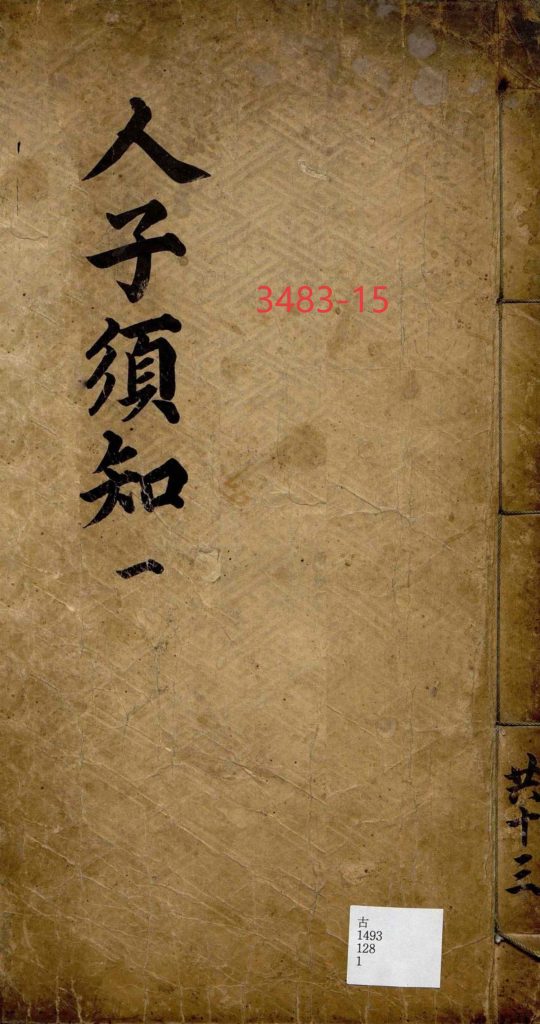 人子須知 一
3483-15
共十三
古
1493
128
1